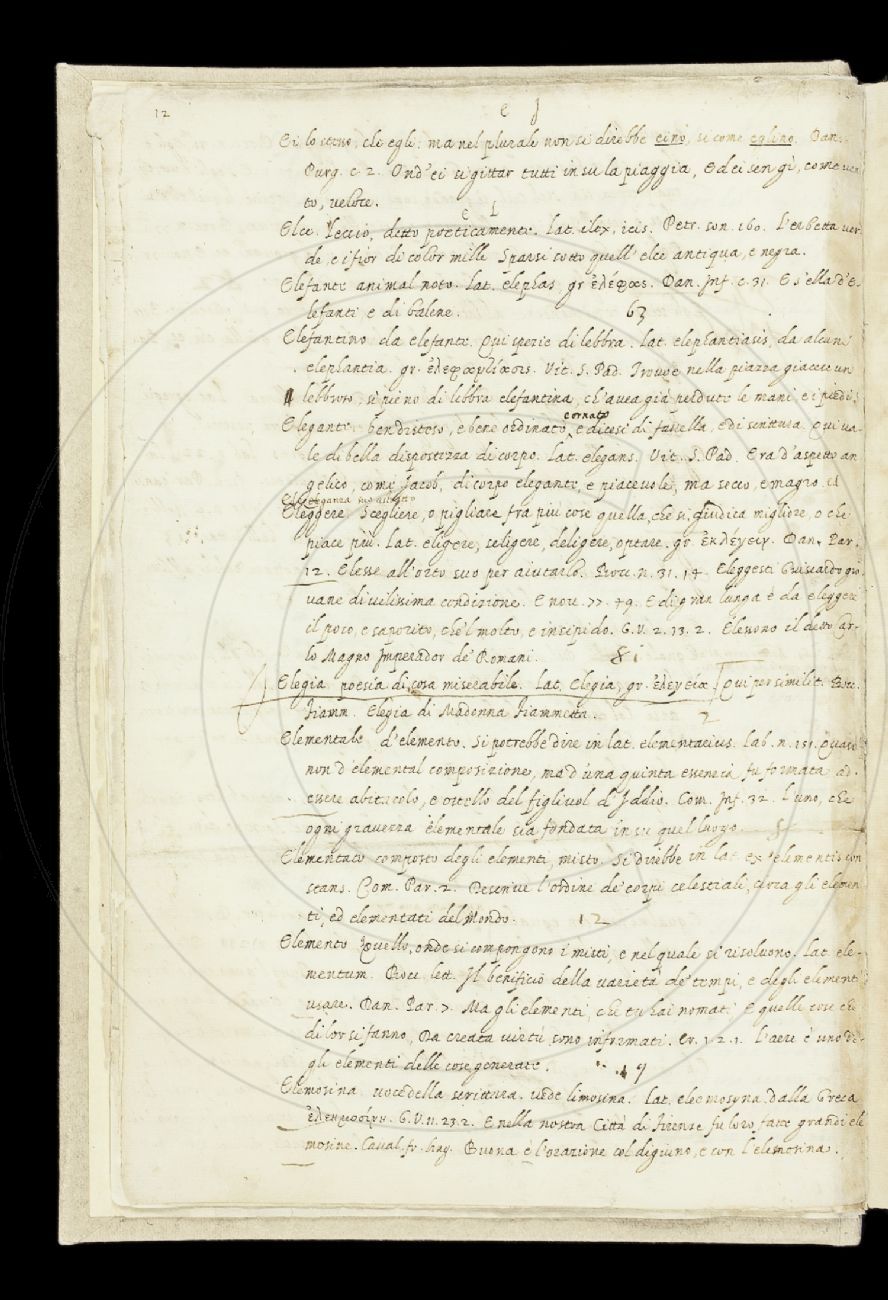 12
E I
Ei lo stesso, che egli: ma nel plurale non si direbbe eino, si come eglino. Dan.
Purg. c. 2. Ond'ei si gittar tutti in su la piaggia, Ed ei sen gì, come ven
to, veloce.
E L
Elce. Leccio, detto poeticamente. Lat. ilex, icis. Petr. son. 160. L'erbetta ver
de, e i fior di color mille Sparsi sotto quell'elce antiqua, e negra.
Elefante animal noto. Lat. elephas gr ἐλέφας. Dan. Inf. c. 31. E s'ella d'e-
lefanti e di balene. 63
Elefantino da elefante. Qui spezie di lebbra. Lat. elephantiasis, da alcuni
elephantia. gr. Vit. S. Pad. Trovoe nella piazza giacere un
lebbroso, sì pieno di lebbra elefantina, ch'avea già perduto le mani, e i piedi.
Elegante. ben disteso, e bene ordinato, e ornato e dicesi di favella, e di scrittura. Qui va-
le di bella dispostezza di corpo. Lat. elegans. Vit. S. Pad. Era d'aspetto an
gelico, come Jacob, di corpo elegante, e piacevole, ma secco, e magro.
Eleganza
Eleggere Scegliere, o pigliare fra più cose quella, che si giudica migliore, o che
piace più. Lat. eligere, seligere, deligere, optare. gr. ἐκλέγειν. Dan. Par.
12. Elesse all'orto suo per aiutarlo. Bocc. n. 31. 14. Eleggesti Guiscardo gio
vane di vilissima condizione. E nov. 77. 49. E di gran lunga è da eleggere
il poco, e saporito, che'l molto, e insipido. G. V. 2. 13. 2. Elessono il detto Car-
lo Magno Imperador de' Romani. 81
Elegia poesia di cosa miserabile. Lat. Elegia, gr. ἐλεγεία. Qui per similit. Bocc.
Fiamm. Elegia di Madonna Fiammetta. 2
Elementale d'elemento. Si potrebbe dire in lat. elementacius. Lab. n. 151. Quasi
non d'elemental composizione, ma d'una quinta essenzia fu formata ad
essere abitacolo, e ostello del figliuol d'Iddio. Com. Inf. 32. L'uno, che
ogni gravezza elementale sia fondata in su quel luogo. 5
Elementato composto degli elementi, misto. Si direbbe in lat. ex elementis con
stans. Com. Par. 2. Descrive l'ordine de' corpi celestiali, circa gli elemen
ti, ed elementati del Mondo. 12
Elemento Quello, onde si compongono i misti, e nel quale si risolvono. Lat. ele-
mentum. Bocc. lett. Il benificio della varietà de' tempi, e degli elementi
usare. Dan. Par. 7. Ma gli elementi, che tu hai nomati E quelle cose che
di lor si fanno, Da creata virtù sono informati. Cr. 1. 2. 1. L'aere è uno de-
gli elementi delle cose generate. 49
Elemosina voce della scrittura. vede limosina. Lat. eleemosyna dalla Greca
ἐλεημοσύνη. G. V. 11. 23. 2. E nella nostra Città di Firenze fu loro fatte grandi ele
mosine. Caval. fr. ling. Buona è l'orazione col digiuno, e con l'elemosina.